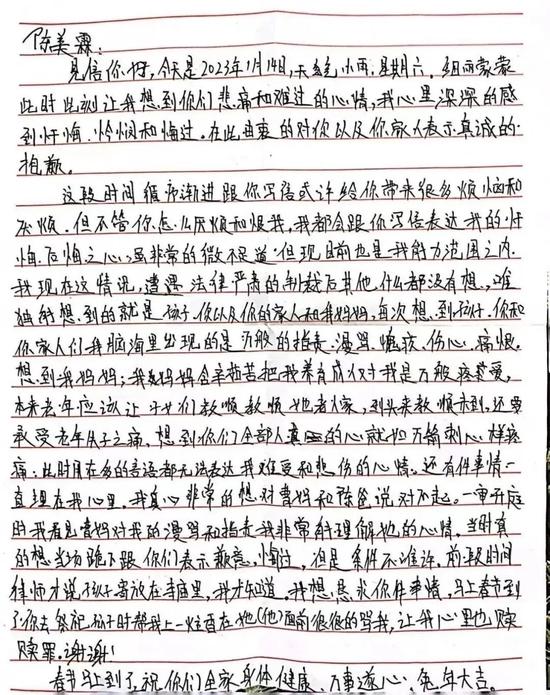 陈美霖:
见信你好,今天是2023年1月14日,天气小雨,星期六,细雨蒙蒙
此时此刻让我想到你们悲痛和难过的心情,我心里深深的感
到忏悔、怜悯和悔过。在此由衷的对你以及你家人表示真诚的
抱歉。
这段时间循序渐进跟你写信或许给你带来很多烦恼和
厌烦。但不管你怎么厌烦和恨我,我都会跟你写信表达我的忏
悔。后悔之心虽非常的微不足道,但现目前也是我能力范围之内。
我现在这情况,遭遇法律严肃的判裁后其他什么都没有想,唯
独能想到的就是孩子、你以及你的家人和我妈妈,每次想到孩子、你和
你家人们我脑海里出现的是万般的指责、漫骂、愧疚、伤心、痛恨。
想到我妈妈;我妈妈含辛茹苦把我养育成人对我是万般疼爱,
本来老年应该让子女们孝顺孝顺她老人家,到头来孝顺未到,还要
承受老年丧子之痛。想到你们全部人真的心就如万箭刺心一样疼
痛;此时用在多的言语都无法表达我难受和悲伤的心情。还有件事情一
直埋在我心里。我真心非常的想对曹妈和陈爸说对不起。一审开庭
时我看见曹妈对我的漫骂和指责我非常能理解她的心情。当时真
的想当场跪下跟你们表示歉意、悔过,但是条件不准许。前段时间
律师才说孩子寄放在寺庙里,我才知道。我想恳求你件事情,马上春节到
了,你去祭祀孩子时帮我上一炷香在她(他)面前很很的骂我,让我心里也赎
赎罪。谢谢!
春节马上到了,祝你们全家身体健康、万事遂心、兔年大吉。